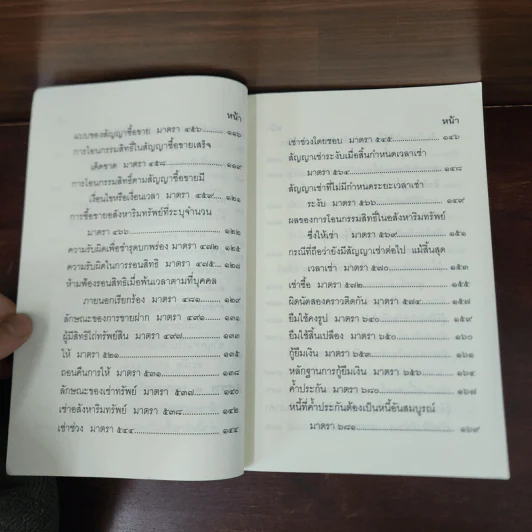 หน้า
แบบของสัญญาซื้อขาย มาตรา ๔๕๖.......... ๑๑๖
การโอนกรรมสิทธิ์ในสัญญาซื้อขายเสร็จ
เด็ดขาด มาตรา ๔๕๘.......... ๑๑๙
การโอนกรรมสิทธิ์ตามสัญญาซื้อขายมี
เงื่อนไขหรือเงื่อนเวลา มาตรา ๔๕๙.......... ๑๒๑
การซื้อขายอสังหาริมทรัพย์ที่ระบุจำนวน
มาตรา ๔๖๖.......... ๑๒๒
ความรับผิดเพื่อชำรุดบกพร่อง มาตรา ๔๗๒ ๑๒๕
ความรับผิดในการรอนสิทธิ มาตรา ๔๗๕... ๑๒๘
ห้ามฟ้องรอนสิทธิเมื่อพ้นเวลาตามที่บุคคล
ภายนอกเรียกร้อง มาตรา ๔๘๑.......... ๑๒๙
ลักษณะของการขายฝาก มาตรา ๔๙๑....... ๑๓๑
ผู้มีสิทธิไถ่ทรัพย์สิน มาตรา ๔๙๗.......... ๑๓๓
ให้ มาตรา ๕๒๑.......... ๑๓๕
ถอนคืนการให้ มาตรา ๕๓๑.......... ๑๓๘
ลักษณะของเช่าทรัพย์ มาตรา ๕๓๗.......... ๑๔๐
เช่าอสังหาริมทรัพย์ มาตรา ๕๓๘.......... ๑๔๒
เช่าช่วง มาตรา ๕๔๔.......... ๑๔๔
หน้า
เช่าช่วงโดยชอบ มาตรา ๕๔๕.......... ๑๔๖
สัญญาเช่าระงับเมื่อสิ้นกำหนดเวลาเช่า
มาตรา ๕๖๔.......... ๑๔๘
สัญญาเช่าที่ไม่มีกำหนดระยะเวลาเช่า
ระงับ มาตรา ๕๖๖.......... ๑๔๙
ผลของการโอนกรรมสิทธิ์ในอสังหาริมทรัพย์
ซึ่งให้เช่า มาตรา ๕๖๙.......... ๑๕๑
กรณีที่ถือว่ายังมีสัญญาเช่าต่อไป แม้สิ้นสุด
เวลาเช่า มาตรา ๕๗๐.......... ๑๕๓
เช่าซื้อ มาตรา ๕๗๒.......... ๑๕๕
ผิดนัดสองคราวติดกัน มาตรา ๕๗๔.......... ๑๕๗
ยืมใช้คงรูป มาตรา ๖๔๐.......... ๑๕๙
ยืมใช้สิ้นเปลือง มาตรา ๖๕๐.......... ๑๖๐
กู้ยืมเงิน มาตรา ๖๕๓.......... ๑๖๑
หลักฐานการกู้ยืมเงิน มาตรา ๖๕๖.......... ๑๖๔
ค้ำประกัน มาตรา ๖๘๐.......... ๑๖๗
หนี้ที่ค้ำประกันต้องเป็นหนี้อันสมบูรณ์
มาตรา ๖๘๑.......... ๑๖๙